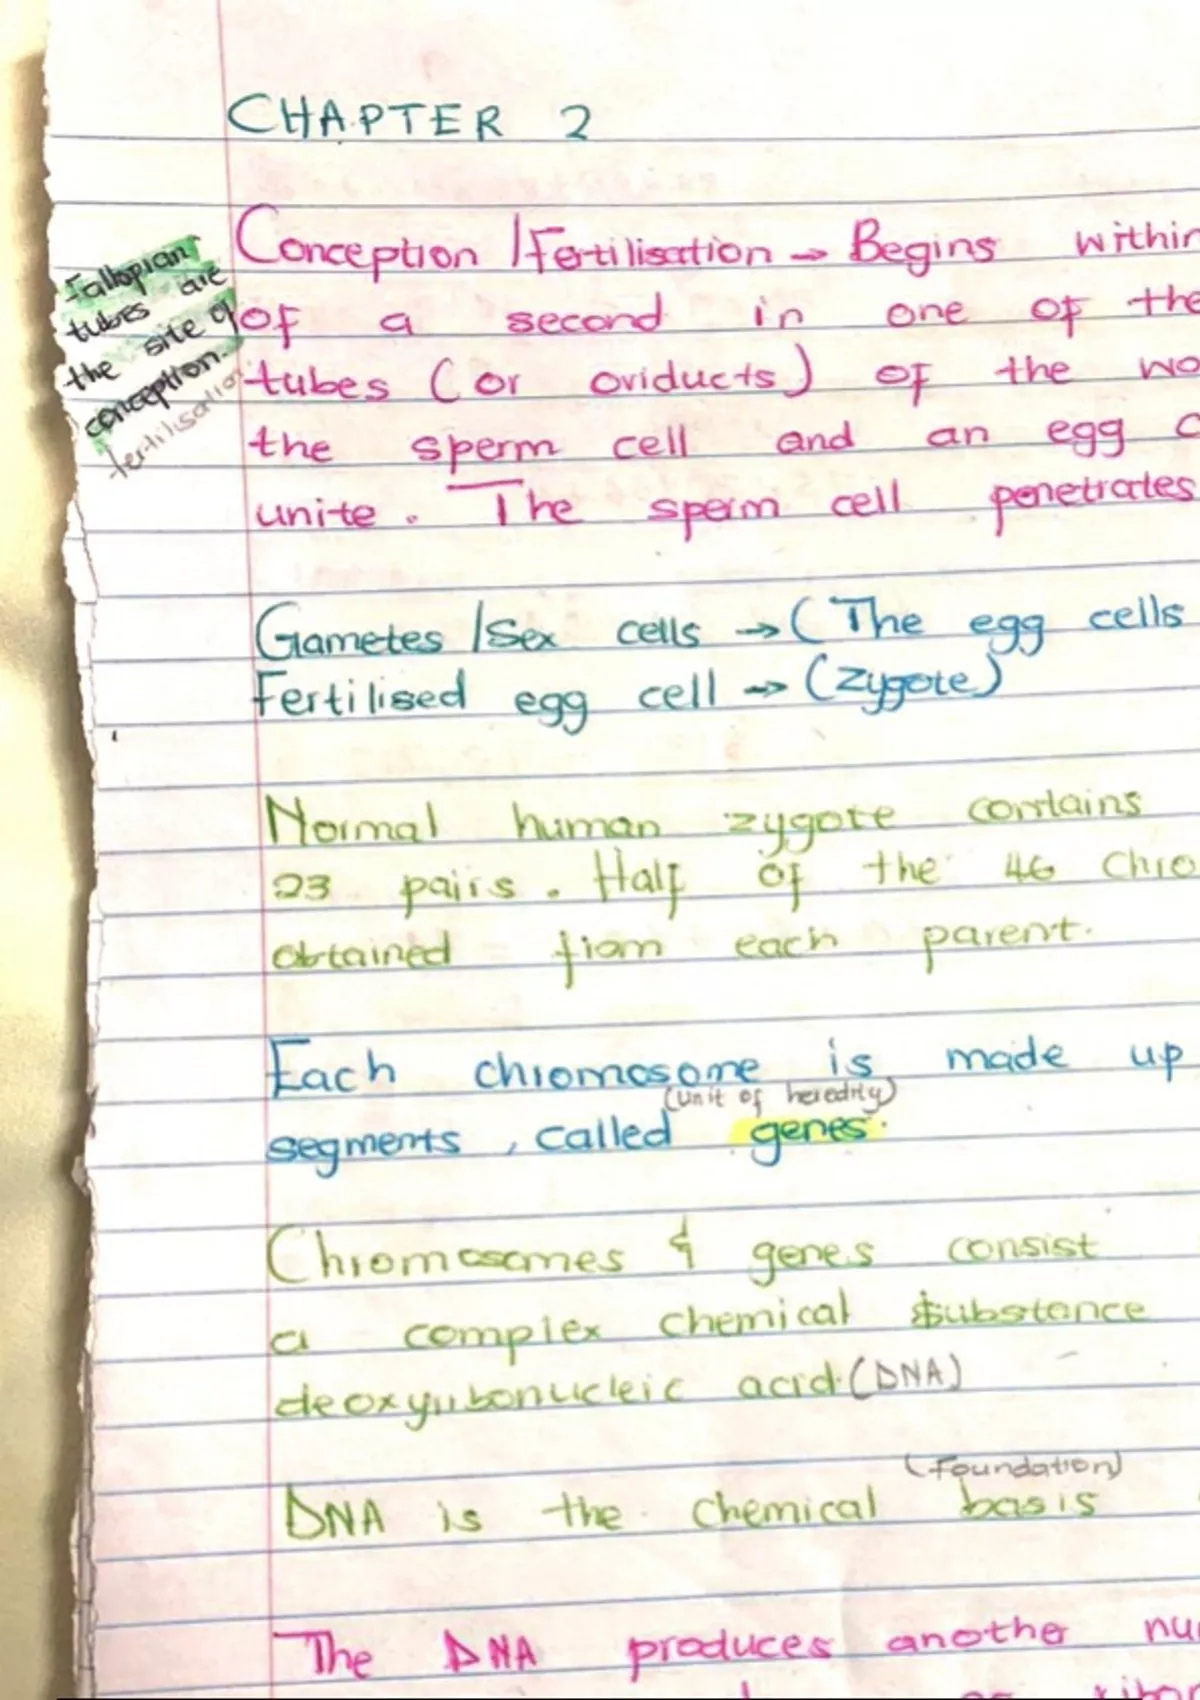 CHAPTER 2
Fallopian
tubes are
the site of
conception.
fertilisation
Conception /Fertilisation → Begins within
of a second in one of the
tubes (or oviducts) of the wo
the sperm cell and an egg c
unite. The sperm cell penetrates
Gametes /Sex cells → (The egg cells
Fertilised egg cell → (zygote)
Normal human zygote contains
23 pairs. Half of the 46 Chro
obtained from each parent.
Each chromosome is made up
(unit of heredity)
segments, called genes.
Chromosomes & genes consist
a complex chemical substance
deoxyribonucleic acid (DNA)
(foundation)
DNA is the chemical basis
The DNA produces another nu